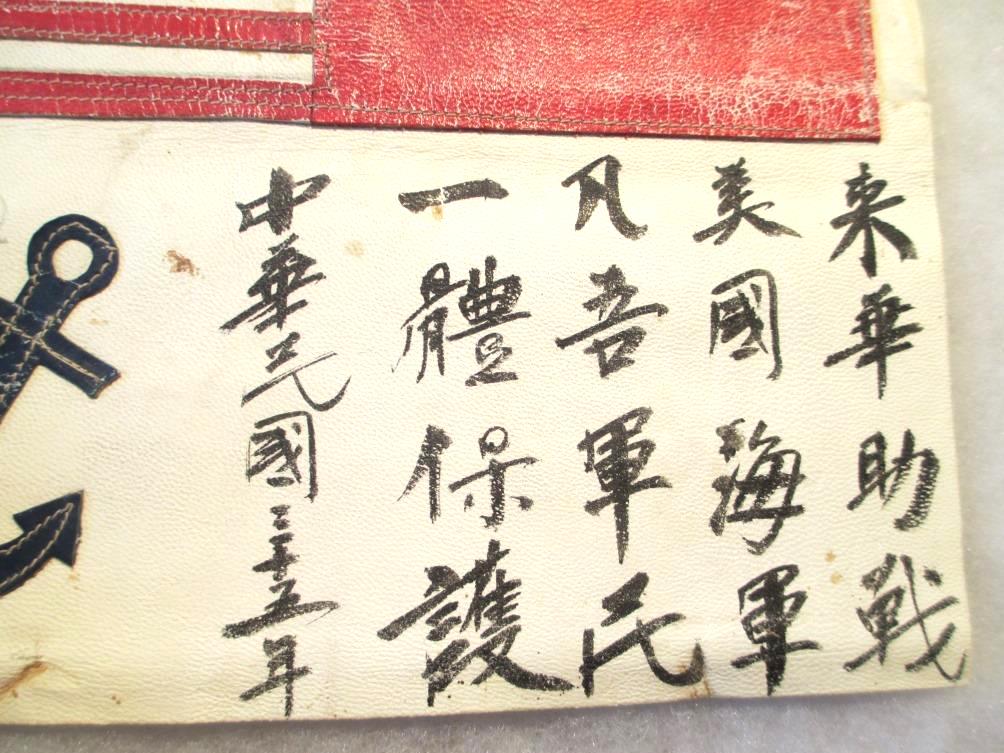 来華助戰
美國海軍
凡吾軍民
一體保護
中華民國三十五年